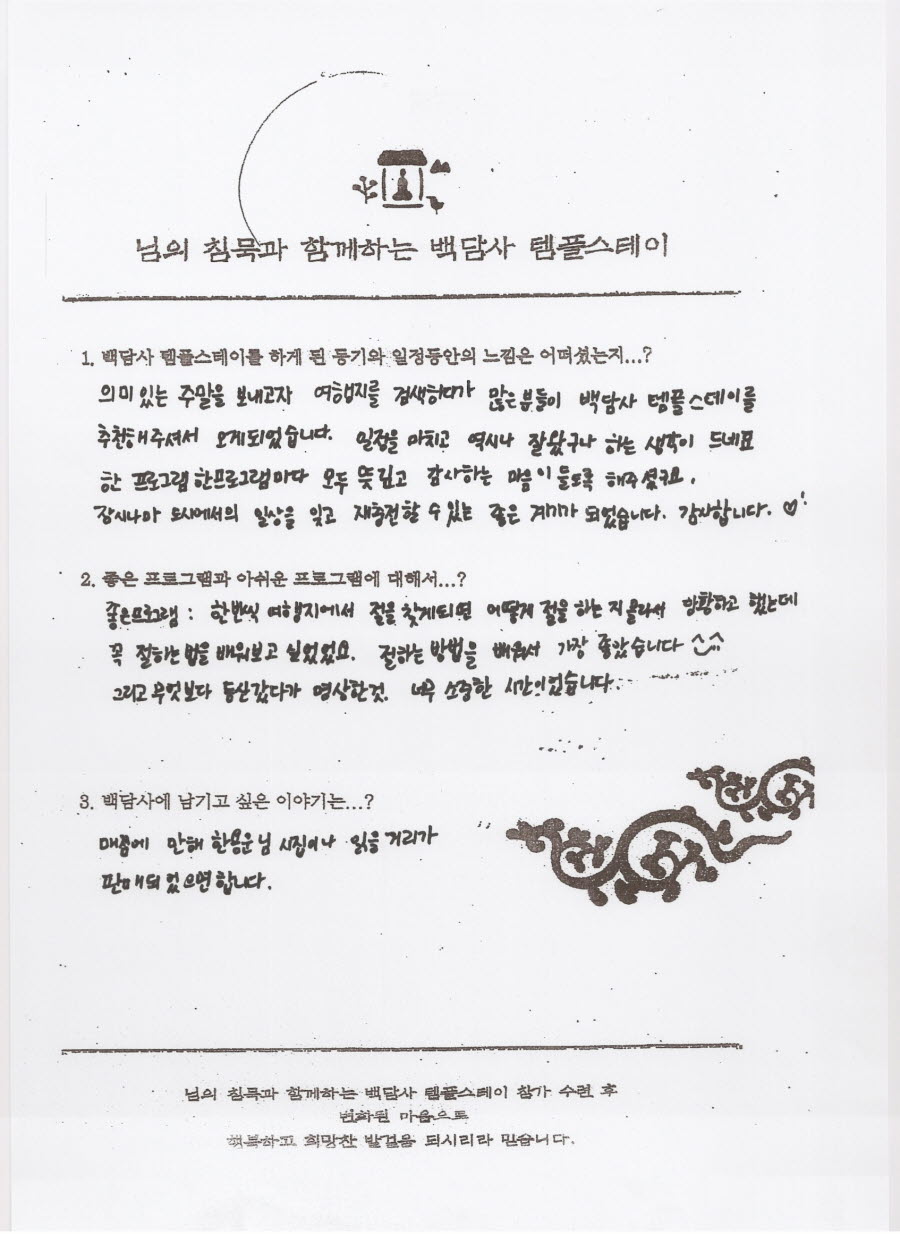 님의 침묵과 함께하는 백담사 템플스테이
1. 백담사 템플스테이를 하게 된 동기와 일정동안의 느낌은 어떠셨는지...?
의미있는 주말을 보내고자 여행지를 검색하다가 많은분들이 백담사 템플스테이를
추천해주셔서 오게되었습니다. 일정을 마치고 역시나 잘왔구나 하는 생각이 드네요
한 프로그램 한프로그램마다 모두 뜻깊고 감사하는 마음이 들도록 해주셨구요.
잠시나마 도시에서의 일상을 잊고 재충전할 수 있는 좋은 계기가 되었습니다. 감사합니다. ♡
2. 좋은 프로그램과 아쉬운 프로그램에 대해서...?
좋은프로그램 : 한번씩 여행지에서 절을 찾게되면 어떻게 절을 하는지 몰라서 당황하고 했는데
꼭 절하는 법을 배워보고 싶었었요. 절하는 방법을 배워서 가장 좋았습니다 ^^
그리고 무엇보다 등산갔다가 명상한것. 너무 소중한 시간이었습니다.
3. 백담사에 남기고 싶은 이야기는...?
매점에 만해 한용운님 시집이나 읽을거리가
판매되었으면합니다.
님의 침묵과 함께하는 백담사 템플스테이 참가 수련 후
변화된 마음으로
행복하고 희망찬 발걸음 되시리라 믿습니다.